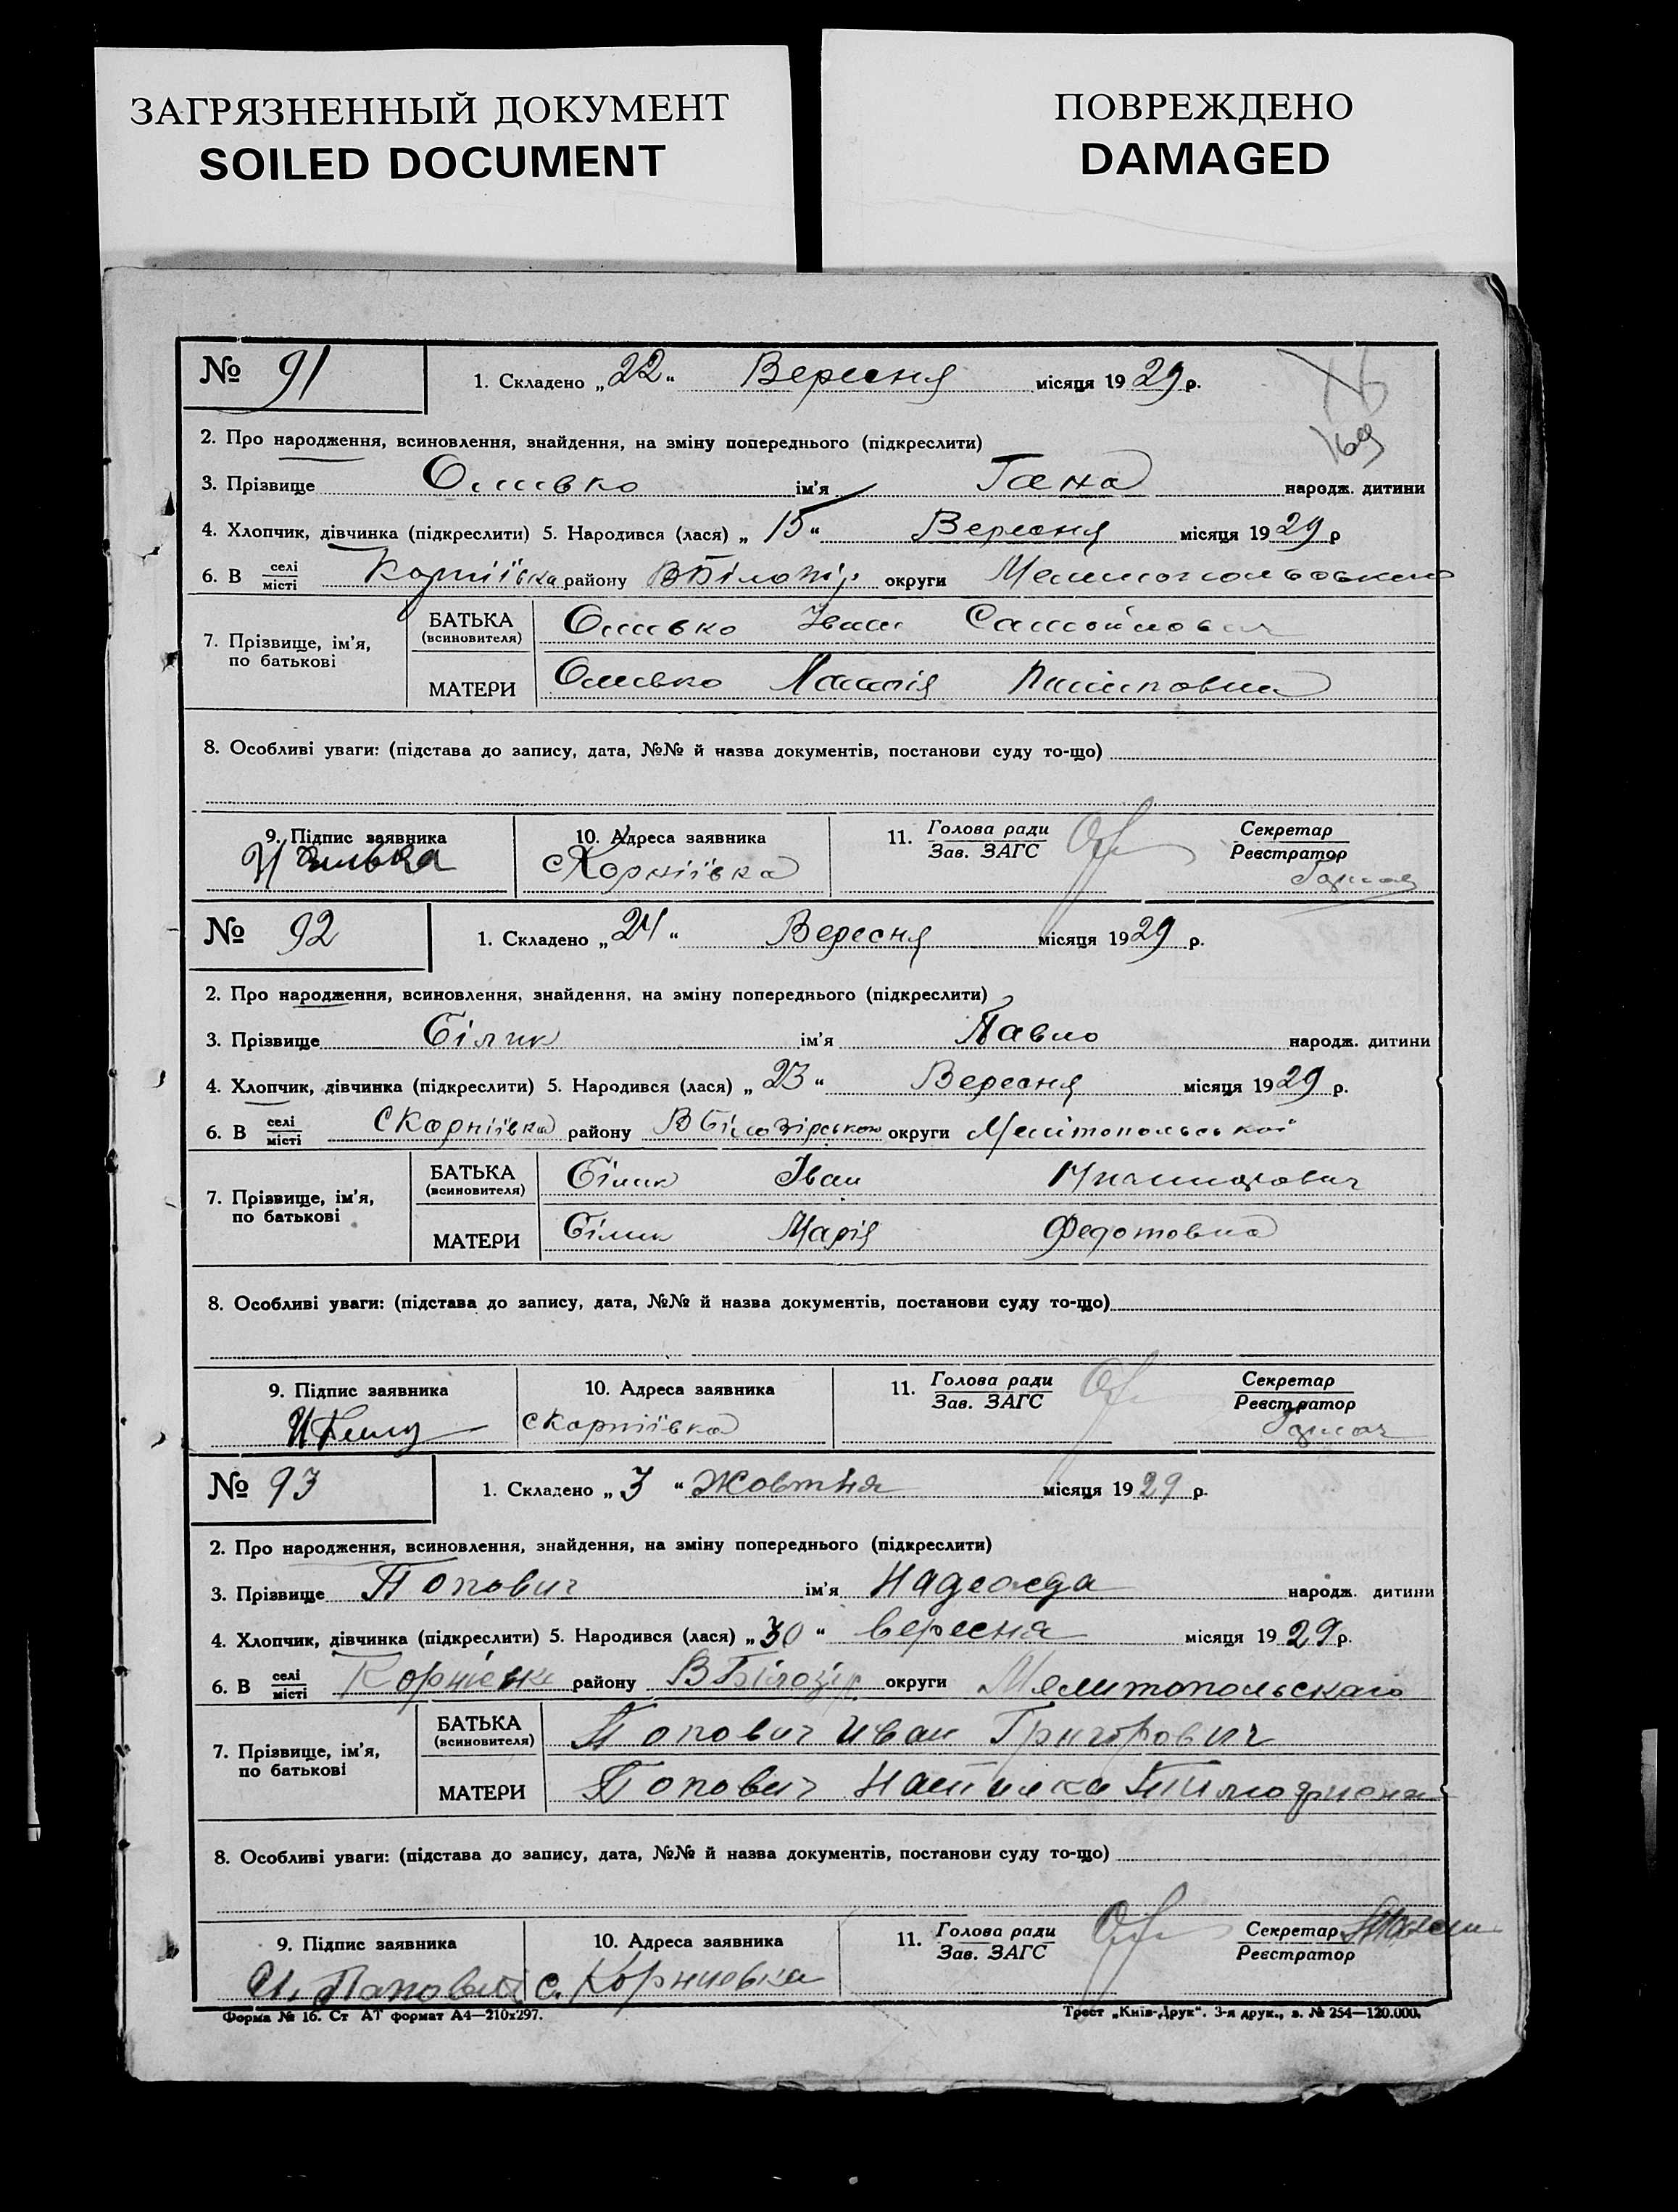 ЗАГРЯЗНЕННЫЙ ДОКУМЕНТ
SOILED DOCUMENT
ПОВРЕЖДЕНО
DAMAGED
№ 91 1. Складено „22“ Вересня місяця 1929 р.
169
2. Про народження, всиновлення, знайдення, на зміну попереднього (підкреслити)
3. Прізвище ім'я Гана народж. дитини
4. Хлопчик, дівчинка (підкреслити) 5. Народився (лася) „15“ Вересня місяця 1929 р
6. В селі/місті Корніївка району ВБілозір. округи
7. Прізвище, ім'я, по батькові
БАТЬКА (всиновителя) Іван Самойлович
МАТЕРИ
8. Особливі уваги: (підстава до запису, дата, №№ й назва документів, постанови суду то-що)
9. Підпис заявника 10. Адреса заявника 11. Голова ради/Зав. ЗАГС Секретар/Реєстратор
С Корніївка
№ 92 1. Складено „24“ Вересня місяця 1929 р.
2. Про народження, всиновлення, знайдення, на зміну попереднього (підкреслити)
3. Прізвище Білик ім'я Павло народж. дитини
4. Хлопчик, дівчинка (підкреслити) 5. Народився (лася) „23“ Вересня місяця 1929 р.
6. В селі/місті С Корніївка району ВБілозірського округи Мелітопольської
7. Прізвище, ім'я, по батькові
БАТЬКА (всиновителя) Білик Іван
МАТЕРИ Білик Марія Федотовна
8. Особливі уваги: (підстава до запису, дата, №№ й назва документів, постанови суду то-що)
9. Підпис заявника 10. Адреса заявника 11. Голова ради/Зав. ЗАГС Секретар/Реєстратор
С Корніївка
№ 93 1. Складено „3“ Жовтня місяця 1929 р.
2. Про народження, всиновлення, знайдення, на зміну попереднього (підкреслити)
3. Прізвище Попович ім'я Надежда народж. дитини
4. Хлопчик, дівчинка (підкреслити) 5. Народився (лася) „30“ вересня місяця 1929 р.
6. В селі/місті району ВБілозір. округи Мелитопольскаго
7. Прізвище, ім'я, по батькові
БАТЬКА (всиновителя) Попович Иван Григорович
МАТЕРИ Попович
8. Особливі уваги: (підстава до запису, дата, №№ й назва документів, постанови суду то-що)
9. Підпис заявника 10. Адреса заявника 11. Голова ради/Зав. ЗАГС Секретар/Реєстратор
И. Попович с. Корниовка
Форма № 16. Ст АТ формат А4—210х297. Трест „Київ-Друк“. 3-я друк., з. № 254—120.000.